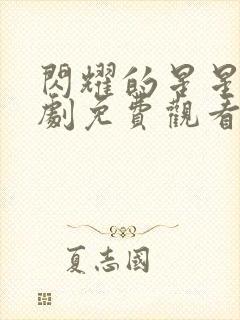 閃耀的星星
劇免費觀看
夏志國